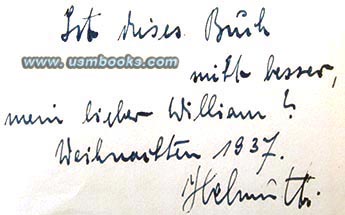 Ist dieses Buch
www.usmbooks.com
nicht besser,
mein lieber William?
Weihnachten 1937.
Helmuth.